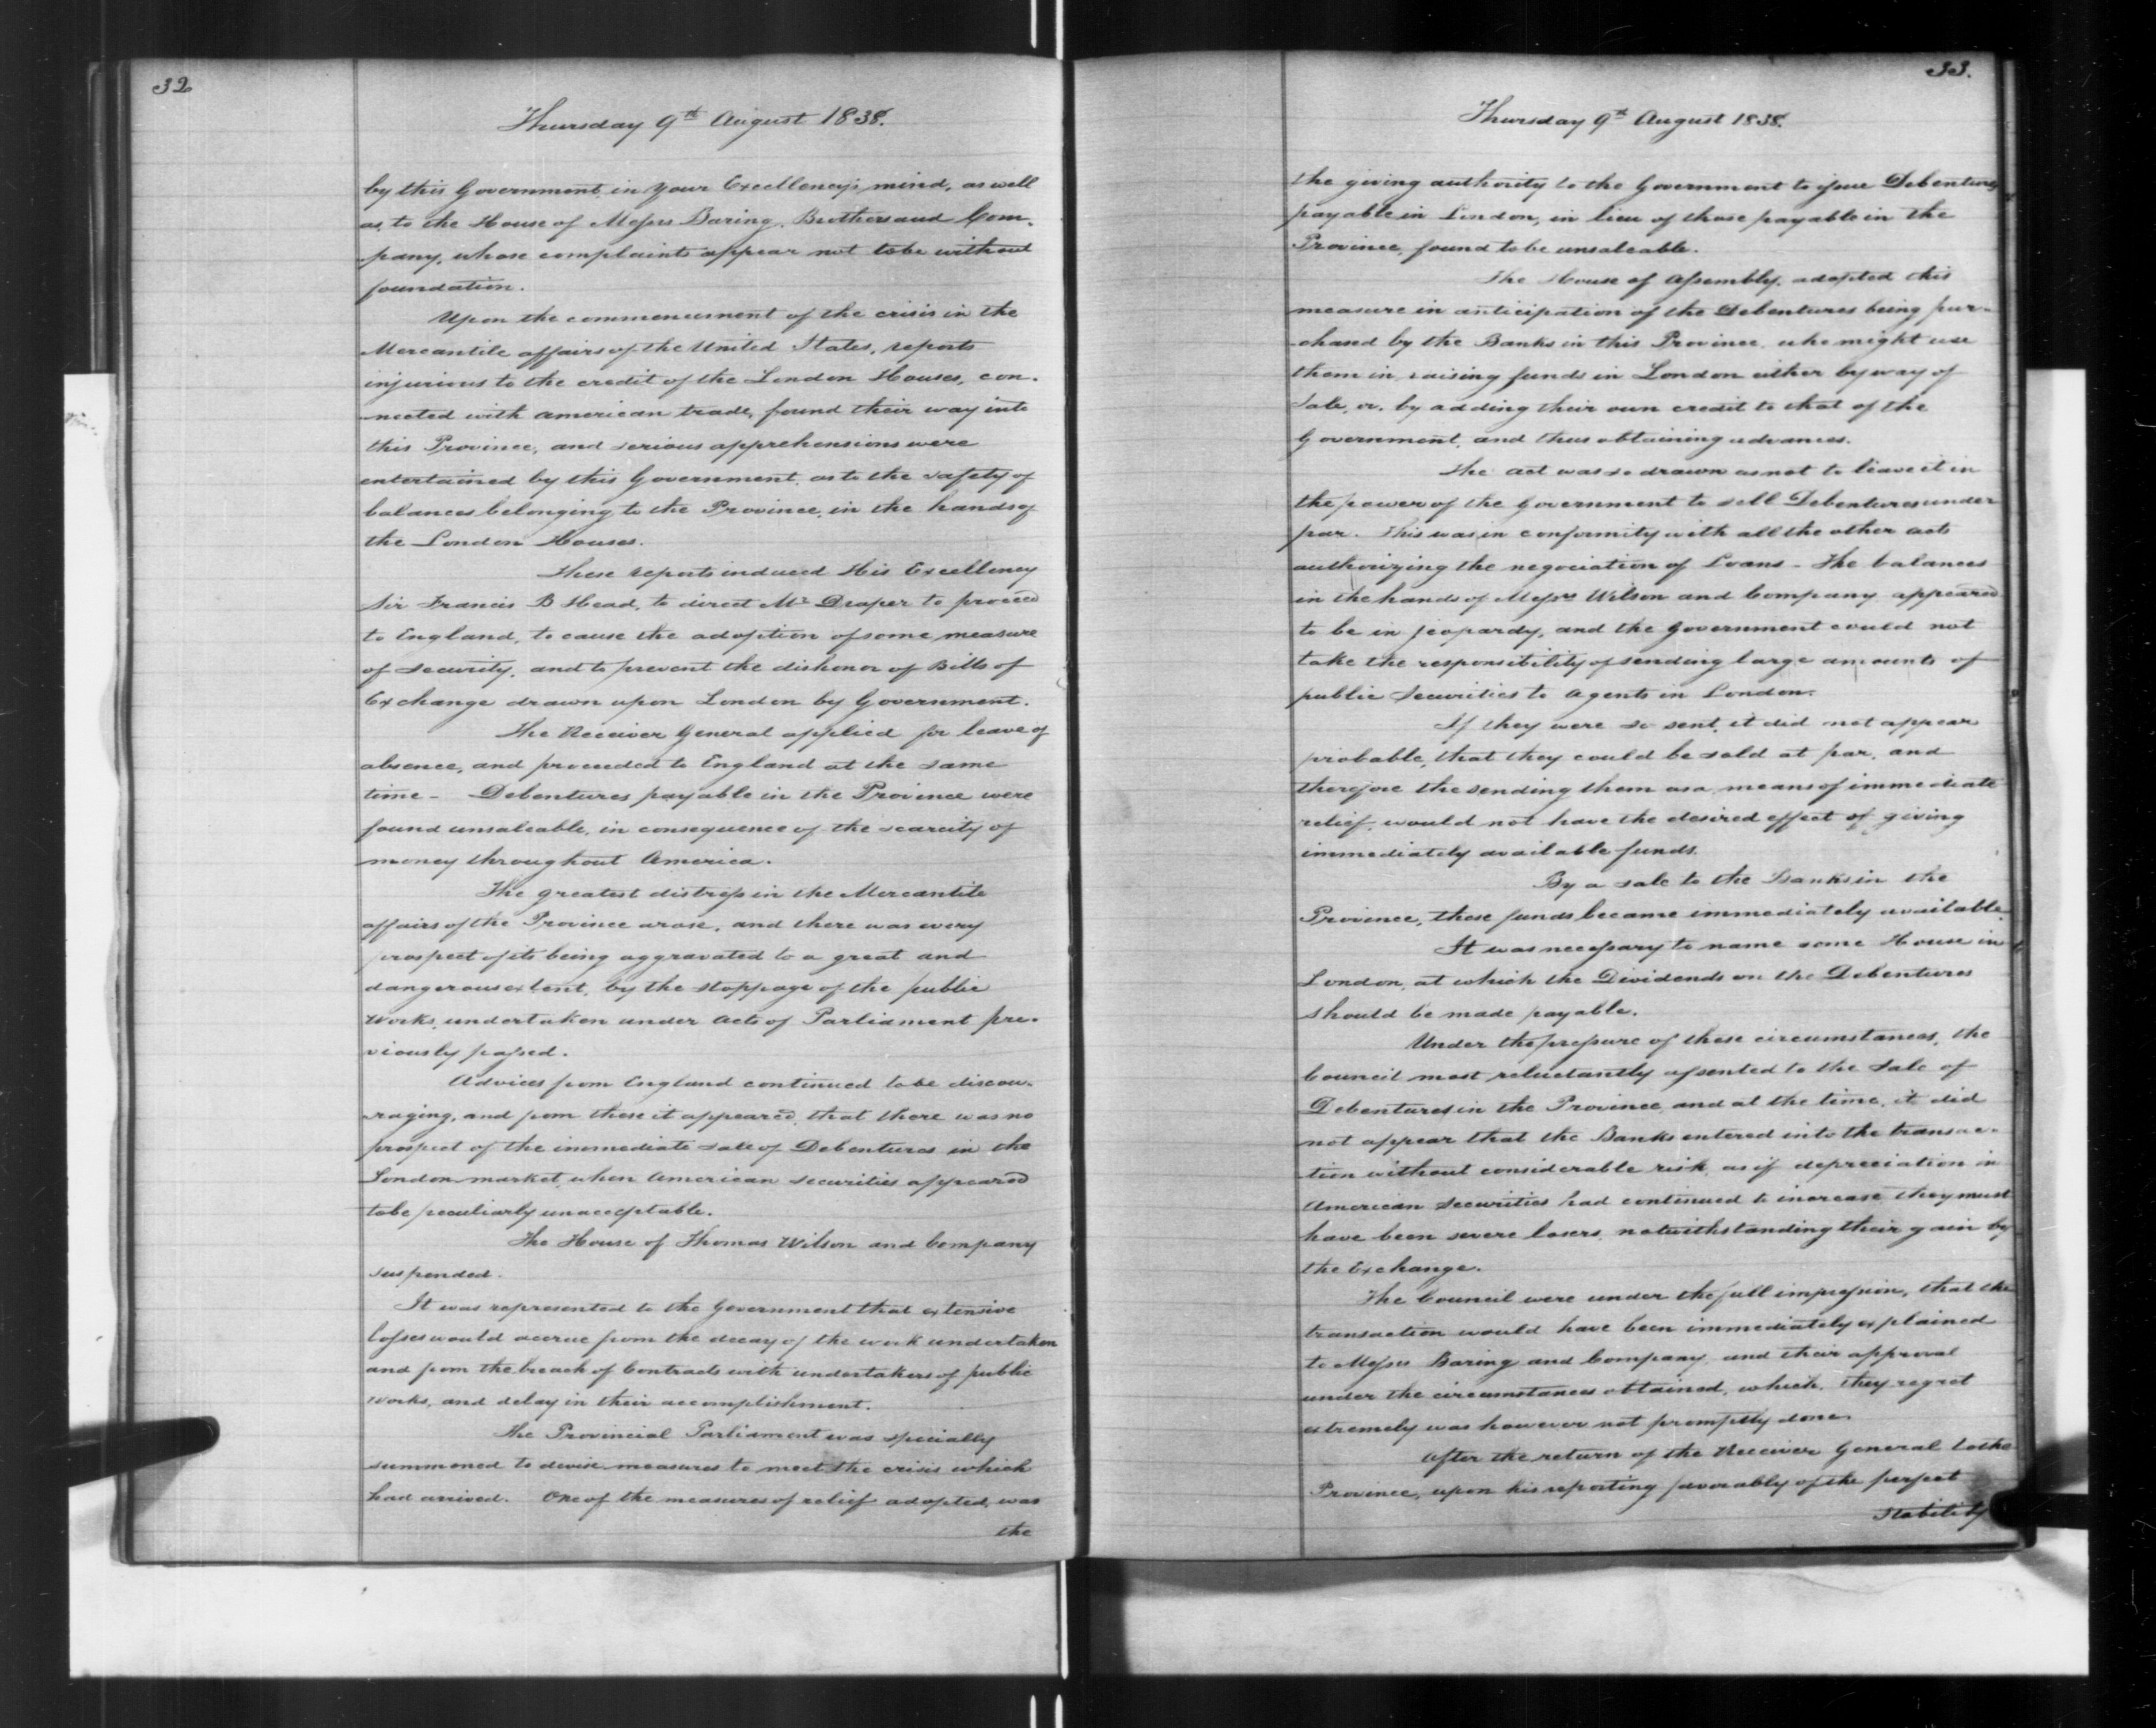 32
Thursday 9th August 1838.
by this Government in Your Excellency's mind, as well
as to the House of Messrs Baring, Brothers and Com-
pany, whose complaints appear not to be without
foundation.
Upon the commencement of the crisis in the
Mercantile affairs of the United States, reports
injurious to the credit of the London Houses, con-
nected with American trade, found their way into
this Province, and serious apprehensions were
entertained by this Government, as to the safety of
balances belonging to the Province, in the hands of
the London Houses.
These reports induced His Excellency
Sir Francis B Head, to direct Mr Draper to proceed
to England, to cause the adoption of some measure
of security, and to prevent the dishonor of Bills of
Exchange drawn upon London by Government.
The Receiver General applied for leave of
absence, and proceeded to England at the same
time - Debentures payable in the Province were
found unsaleable, in consequence of the scarcity of
money throughout America.
The greatest distress in the Mercantile
affairs of the Province arose, and there was every
prospect of its being aggravated to a great and
dangerous extent, by the stoppage of the public
Works, undertaken under Acts of Parliament pre-
viously passed.
Advices from England continued to be discou-
raging, and from these it appeared, that there was no
prospect of the immediate sale of Debentures in the
London market, when American securities appeared
to be peculiarly unacceptable.
The House of Thomas Wilson and Company
suspended.
It was represented to the Government that extensive
losses would accrue from the decay of the work undertaken
and from the breach of Contracts with undertakers of public
Works, and delay in their accomplishment.
The Provincial Parliament was specially
summoned to devise measures to meet the crisis which
had arrived. One of the measures of relief adopted, was
the
33.
Thursday 9th August 1838.
the giving authority to the Government to issue Debentures
payable in London, in lieu of those payable in the
Province, found to be unsaleable.
The House of Assembly, adopted this
measure in anticipation of the Debentures being pur-
chased by the Banks in this Province, who might use
them in raising funds in London either by way of
Sale, or, by adding their own credit to that of the
Government, and thus obtaining advances.
The act was so drawn as not to leave it in
the power of the Government to sell Debentures under
par. This was in conformity with all the other acts
authorizing the negociation of Loans - The balances
in the hands of Messrs Wilson and Company appeared
to be in jeopardy, and the Government could not
take the responsibility of sending large amounts of
public Securities to Agents in London.
If they were so sent, it did not appear
probable, that they could be sold at par, and
therefore the sending them as a means of immediate
relief, would not have the desired effect of giving
immediately available funds.
By a sale to the Banks in the
Province, these funds became immediately available.
It was necessary to name some House in
London, at which the Dividends on the Debentures
should be made payable.
Under the pressure of these circumstances, the
Council most reluctantly assented to the Sale of
Debentures in the Province, and at the time, it did
not appear that the Banks entered into the transac-
tion without considerable risk, as if depreciation in
American Securities had continued to increase they must
have been severe losers, notwithstanding their gain by
the Exchange.
The Council were under the full impression, that the
transaction would have been immediately explained
to Messrs Baring and Company, and their approval
under the circumstances obtained, which, they regret
extremely was however not promptly done.
After the return of the Receiver General to the
Province, upon his reporting favorably of the perfect
Stability